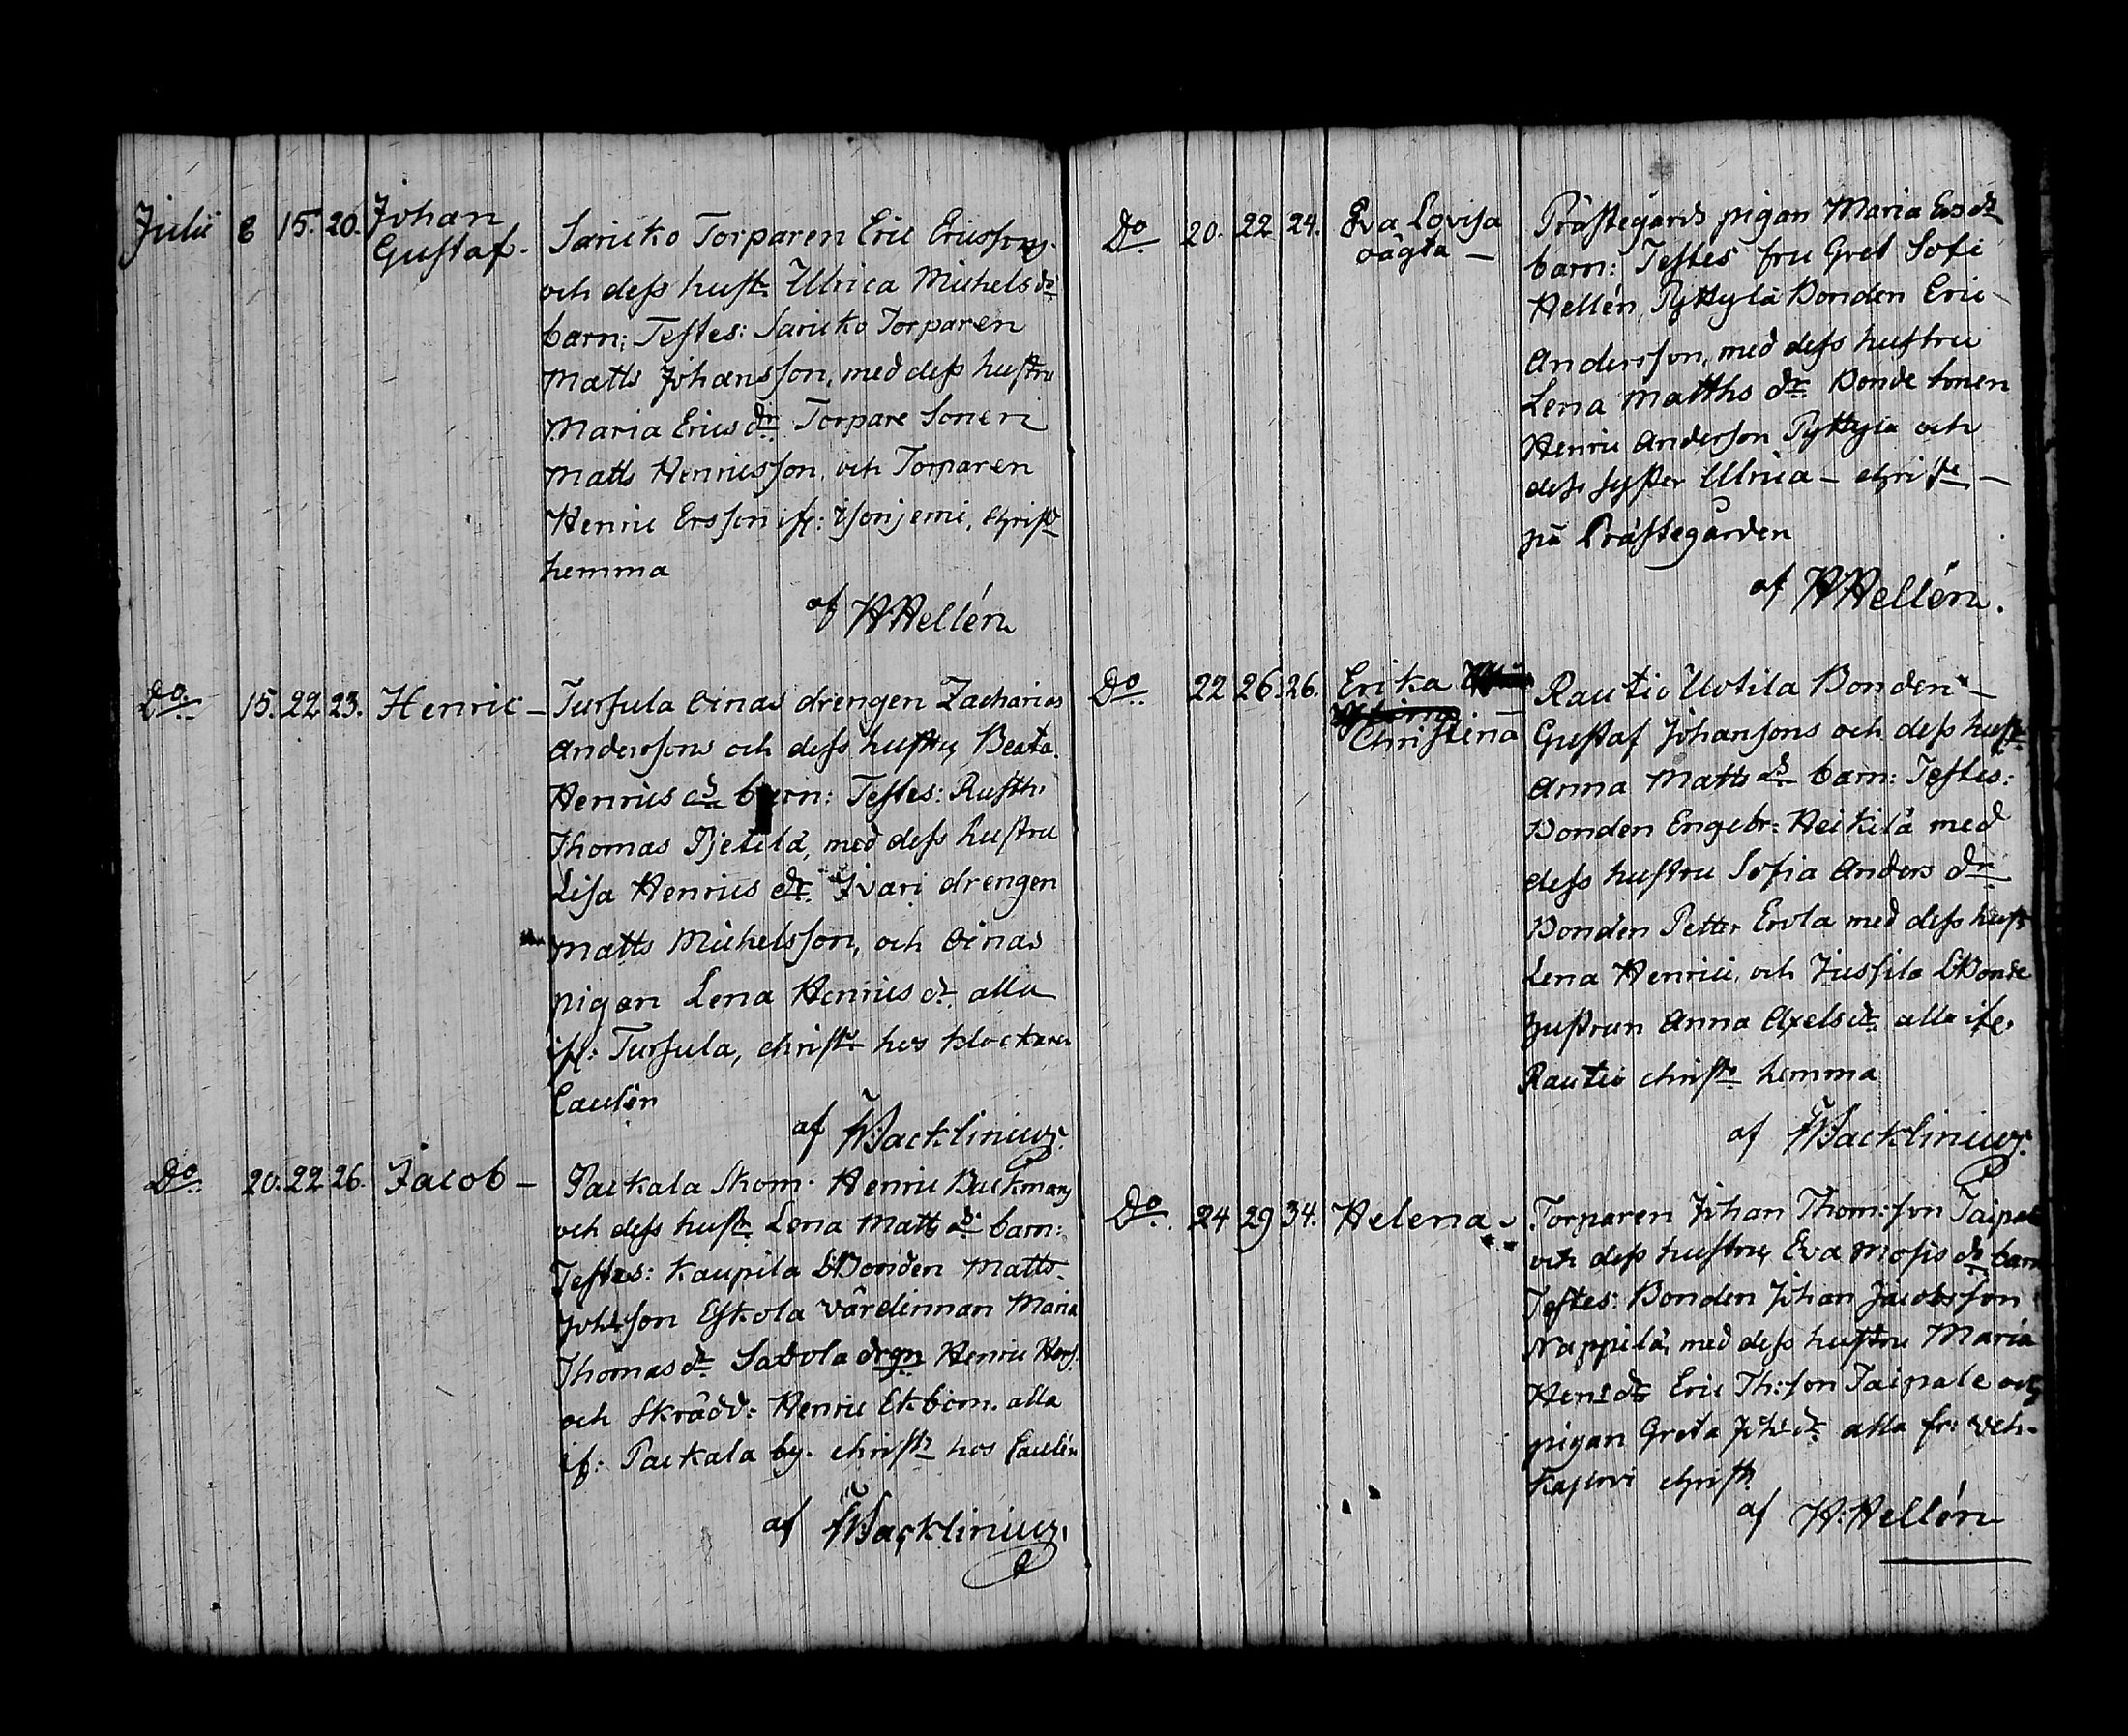 Julii 8 15. 20. Johan
Gustaf. Saricko Torparen Eric Ericssons
och dess hustr Ulrica Michels dr
barn: Testes: Saricko Torparen
Matts Johansson, med dess hustru
Maria Erics dr Torpare Sonen
Matts Henricsson, och Torparen
Henric Ersson ifr: Isonjemi, Christ
hemma
af H Hellén
Do. 15. 22 23. Henric – Tursula Oinas drengen Zacharias
Anderssons och dess hustru Beata
Henrics dr barn: Testes: Rusth:
Thomas Pjetilä, med dess hustru
Lisa Henrics dr. Ivari drengen
Matts Michelsson, och Oinas
pigan Lena Henrics dr alla
ifr: Tursula, christ hos klockaren
Caulén
af Backlinius.
Do. 20. 22 26. Jacob – Packala Skom. Henric Buckmans
och dess hustr Lena Matts dr barn:
Testes: Kaupila Bonden Matts
Johsson Eskola värdinnan Maria
Thomas dr Savola drgn Henric Hens.
och Skrädd: Henric Ekbom. alla
if: Packala by. christ hos Caulén
af Backlinius.
Do 20. 22 24. Eva Lovisa
oägta – Prästegårds pigan Maria Ers dr
barn: Testes fru Gret Sofi
Hellén, Pyttylä Bonden Eric
Andersson, med dess hustru
Lena Matths dr Bonde sonen
Henric Anderson Pyttylä och
dess syster Ulrica – christ –
på Prästegården
af H Hellén.
Do. 22 26. 26. Erika
Christina Rautio Uotila Bonden –
Gustaf Johansons och dess hustr
Anna Matts dr barn: Testes:
Bonden Engebr: Heikilä med
dess hustru Sofia Anders dr
Bonden Petter Ervla med dess hust
Lena Henrici, och Jussila Bonde
hustrun Anna Axels dr alla ifr.
Rautio christ hemma
af Backlinius.
Do. 24 29 34. Helena Torparen Johan Thom:son Taipale
och dess hustru Eva Mosis dr barn
Testes: Bonden Johan Jacobsson
Nappilä, med dess hustru Maria
Hens dr Eric Th:son Taipale och
pigan Greta Joh dr alla fr: Veh-
kajervi christ
af H. Hellén